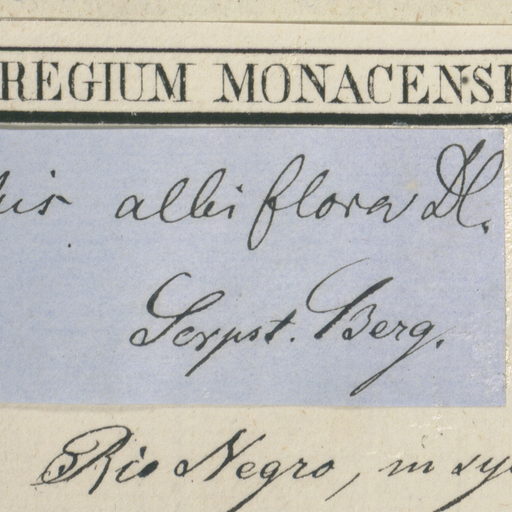 REGIUM MONACENS
albiflora Dl.
Scrpst. Berg.
Rio Negro, in sy